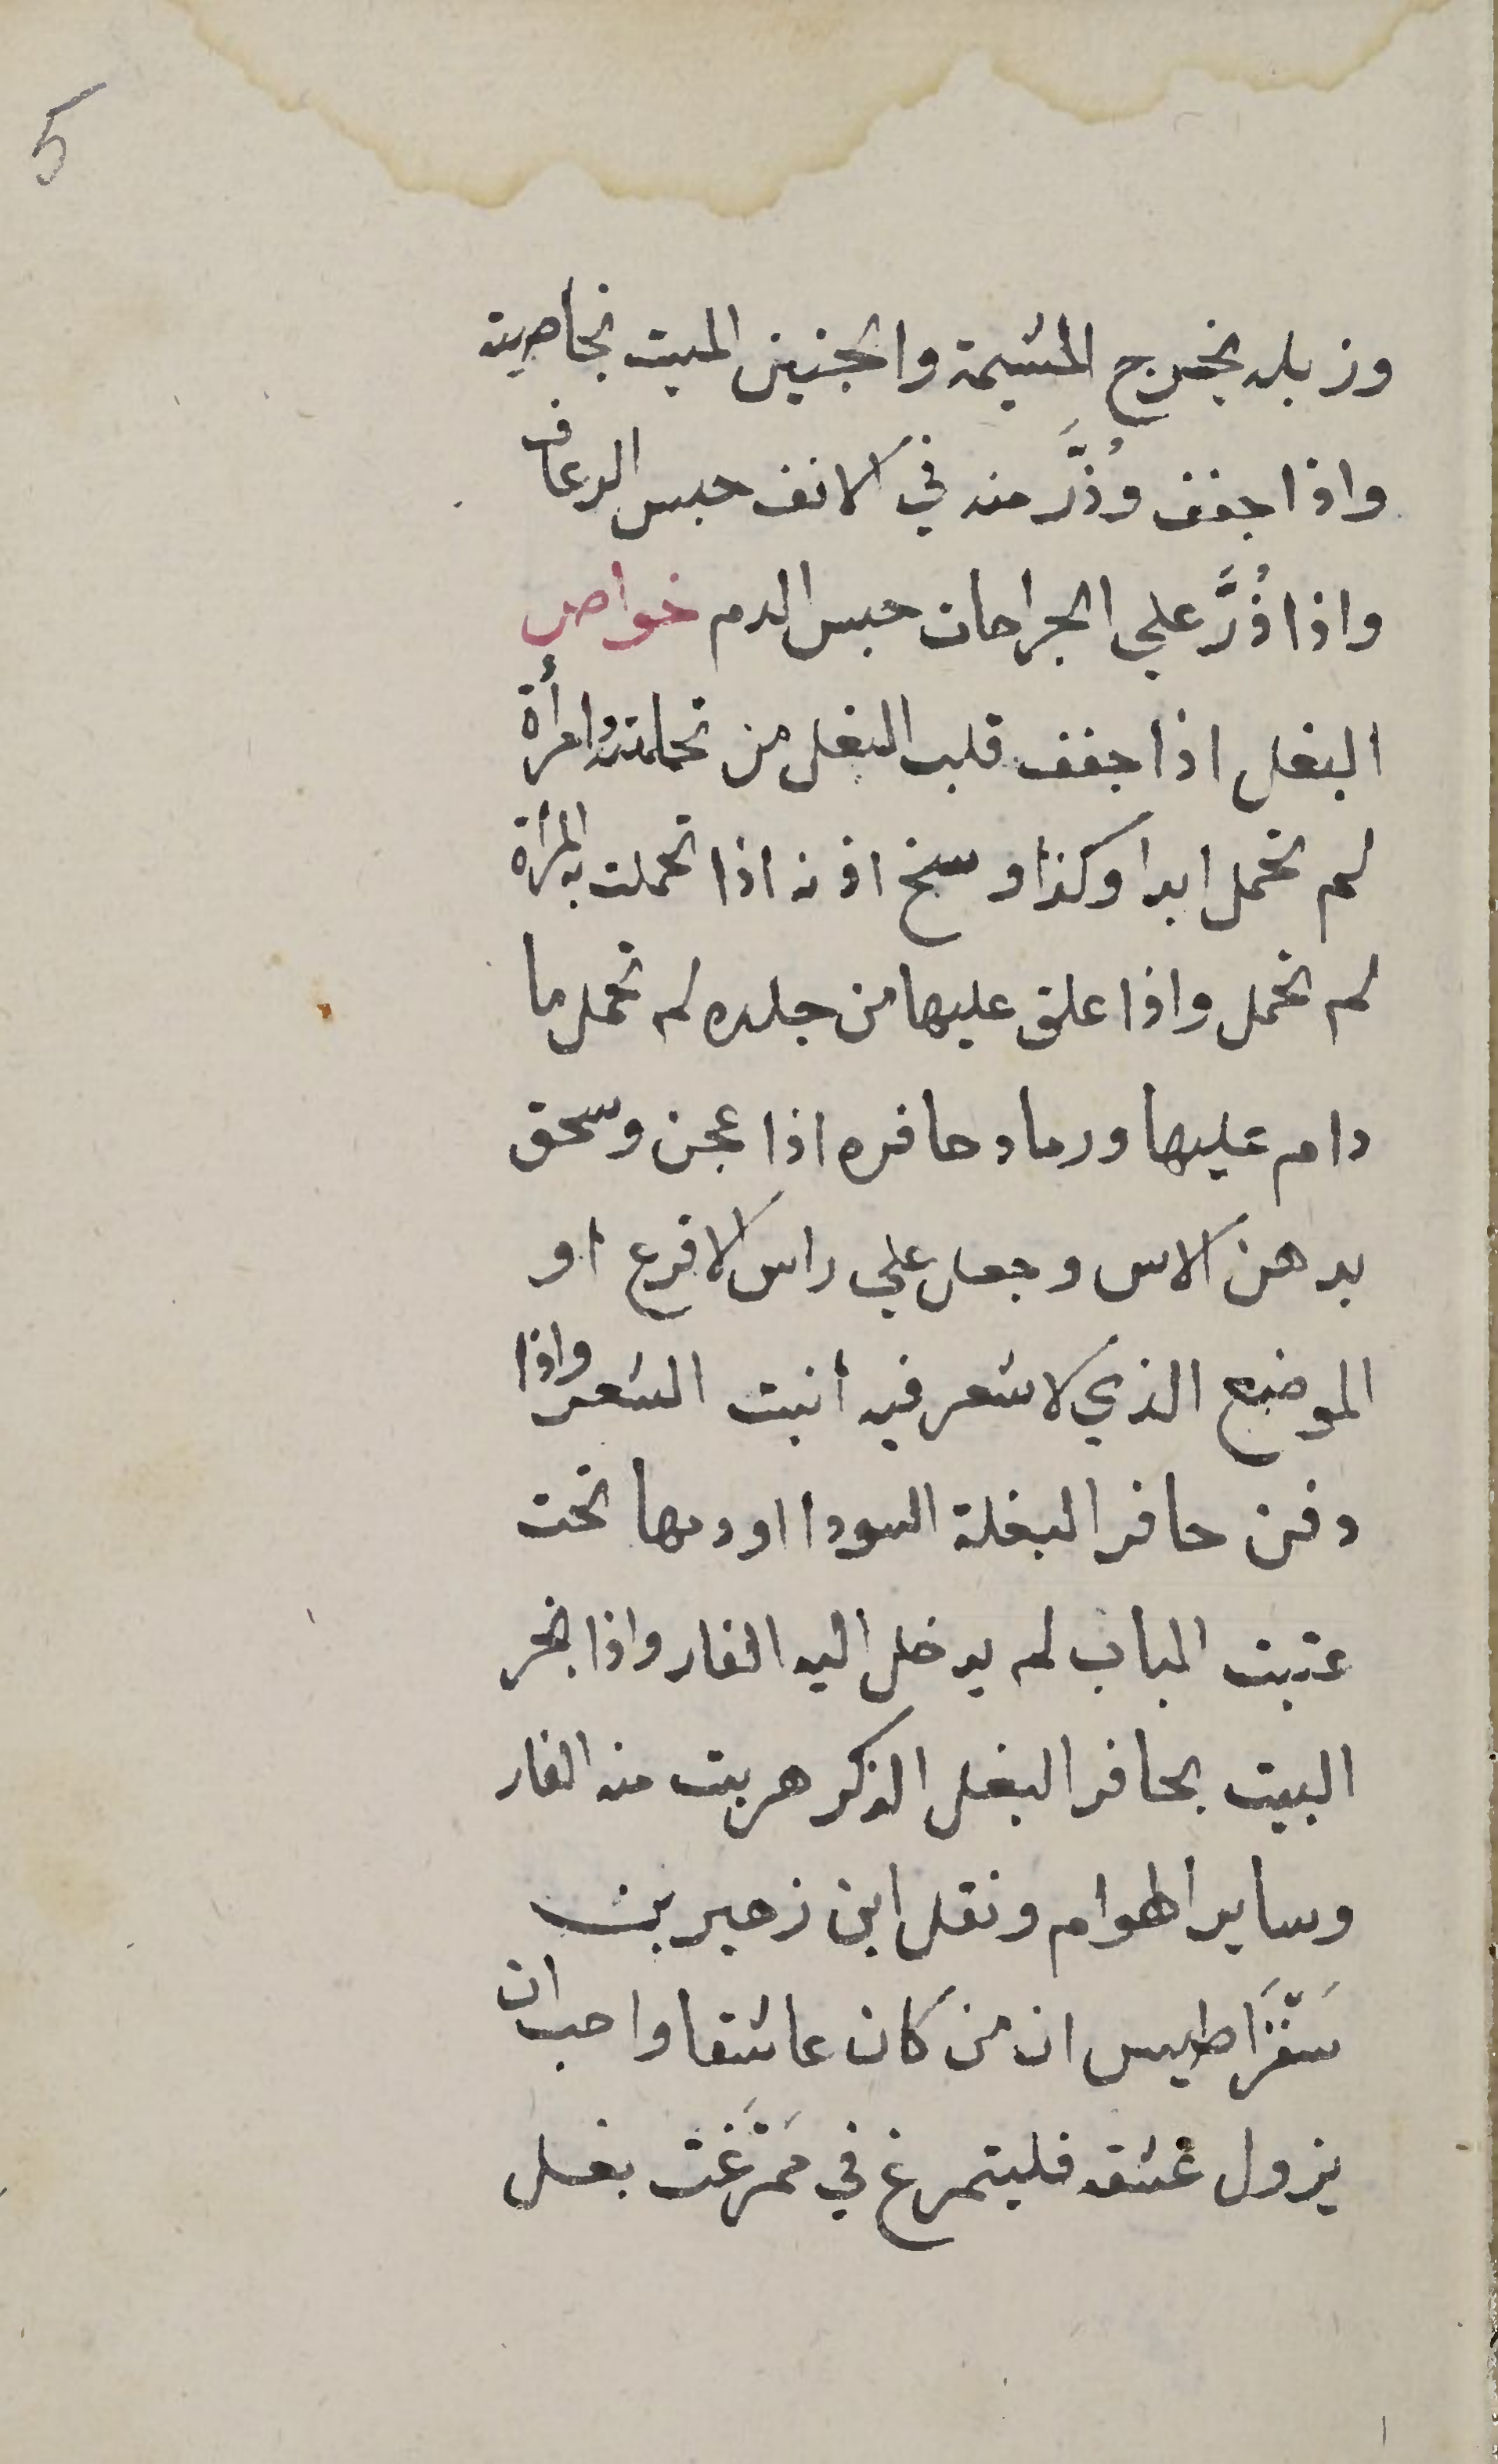 5
وزبله يخرج المشيمة والجنين الميت بخاصية
واذا جفف وذُرَّ منه في الانف حبس الرعاف
واذا ذُرَّ علي الجراحات حبس الدم خواص
البغل اذا جفف قلب البغل من تحملته امرأة
لم تحمل ابدا وكذا وسخ اذنه اذا تحملت به المرأة
لم تحمل واذا علق عليها من جلده لم تحمل ما
دام عليها ورماد حافره اذا عجن وسحق
بدهن الاس وجعل علي راس الاقرع او
الموضع الذي لا شعر فيه أنبت الشعر واذا
دفن حافر البغلة السودا او دمها تحت
عتبت الباب لم يدخل اليه الفار واذا بخر
البيت بحافر البغل الذكر هربت منه الفار
وساير الهوام ونقل ابن زهير بن
سَقَرَاطيس ان من كان عاشقا واحب ان
يزول عشقه فليتمرغ في مَمَرْغَت بغل